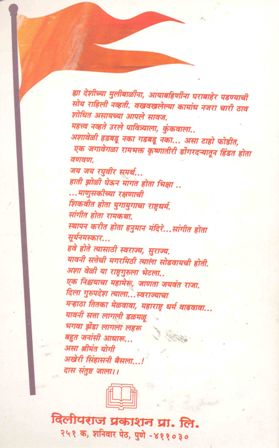 ह्या देशीच्या मुलीबाळींना, आयाबहिणींना घराबाहेर पडण्याची
सोय राहिली नव्हती. वखवखलेल्या कामांध नजरा चारी ठाव
शोधित असायच्या आपले सावज.
महत्त्व नव्हते उरले पावित्र्याला, कुंकवाला..
अशावेळी हडबडू नका गडबडू नका... असा टाहो फोडीत,
एक जगावेगळा रामभक्त कृष्णातीरी डोंगरदऱ्यातून हिंडत होता
वणवण.
जय जय रघुवीर समर्थ...
हाती झोळी घेऊन मांगत होता भिक्षा ..
...माणुसकीच्या रक्षणाची
शिकवीत होता युगायुगाचा राष्ट्रधर्म.
सांगीत होता रामकथा.
स्थापन करीत होता हनुमान मंदिरे...सांगीत होता
सूर्यनमस्कार...
हवे होते त्यासाठी स्वराज्य, सुराज्य.
यावनी सत्तेची मगरमिठी त्याला सोडवायची होती.
अशा वेळी या राष्ट्रगुरुला भेटला..
एक निश्चयाचा महामेरू, जाणता जयवंत राजा.
दिला गुरुपदेश त्याला...स्वराज्याचा
मऱ्हाठा तितका मेळवावा, महाराष्ट्र धर्म वाढवावा...
यावनी सत्ता लागली डळमळू
भगवा झेंडा लागला लहरू
बहुत जनांसी आधारू...
असा श्रीमंत योगी
अखेरी सिंहासनी बैसला...!
दास संतुष्ट जाला।।
दिलीपराज प्रकाशन प्रा. लि.
२५१ क, शनिवार पेठ, पुणे -४११०३०